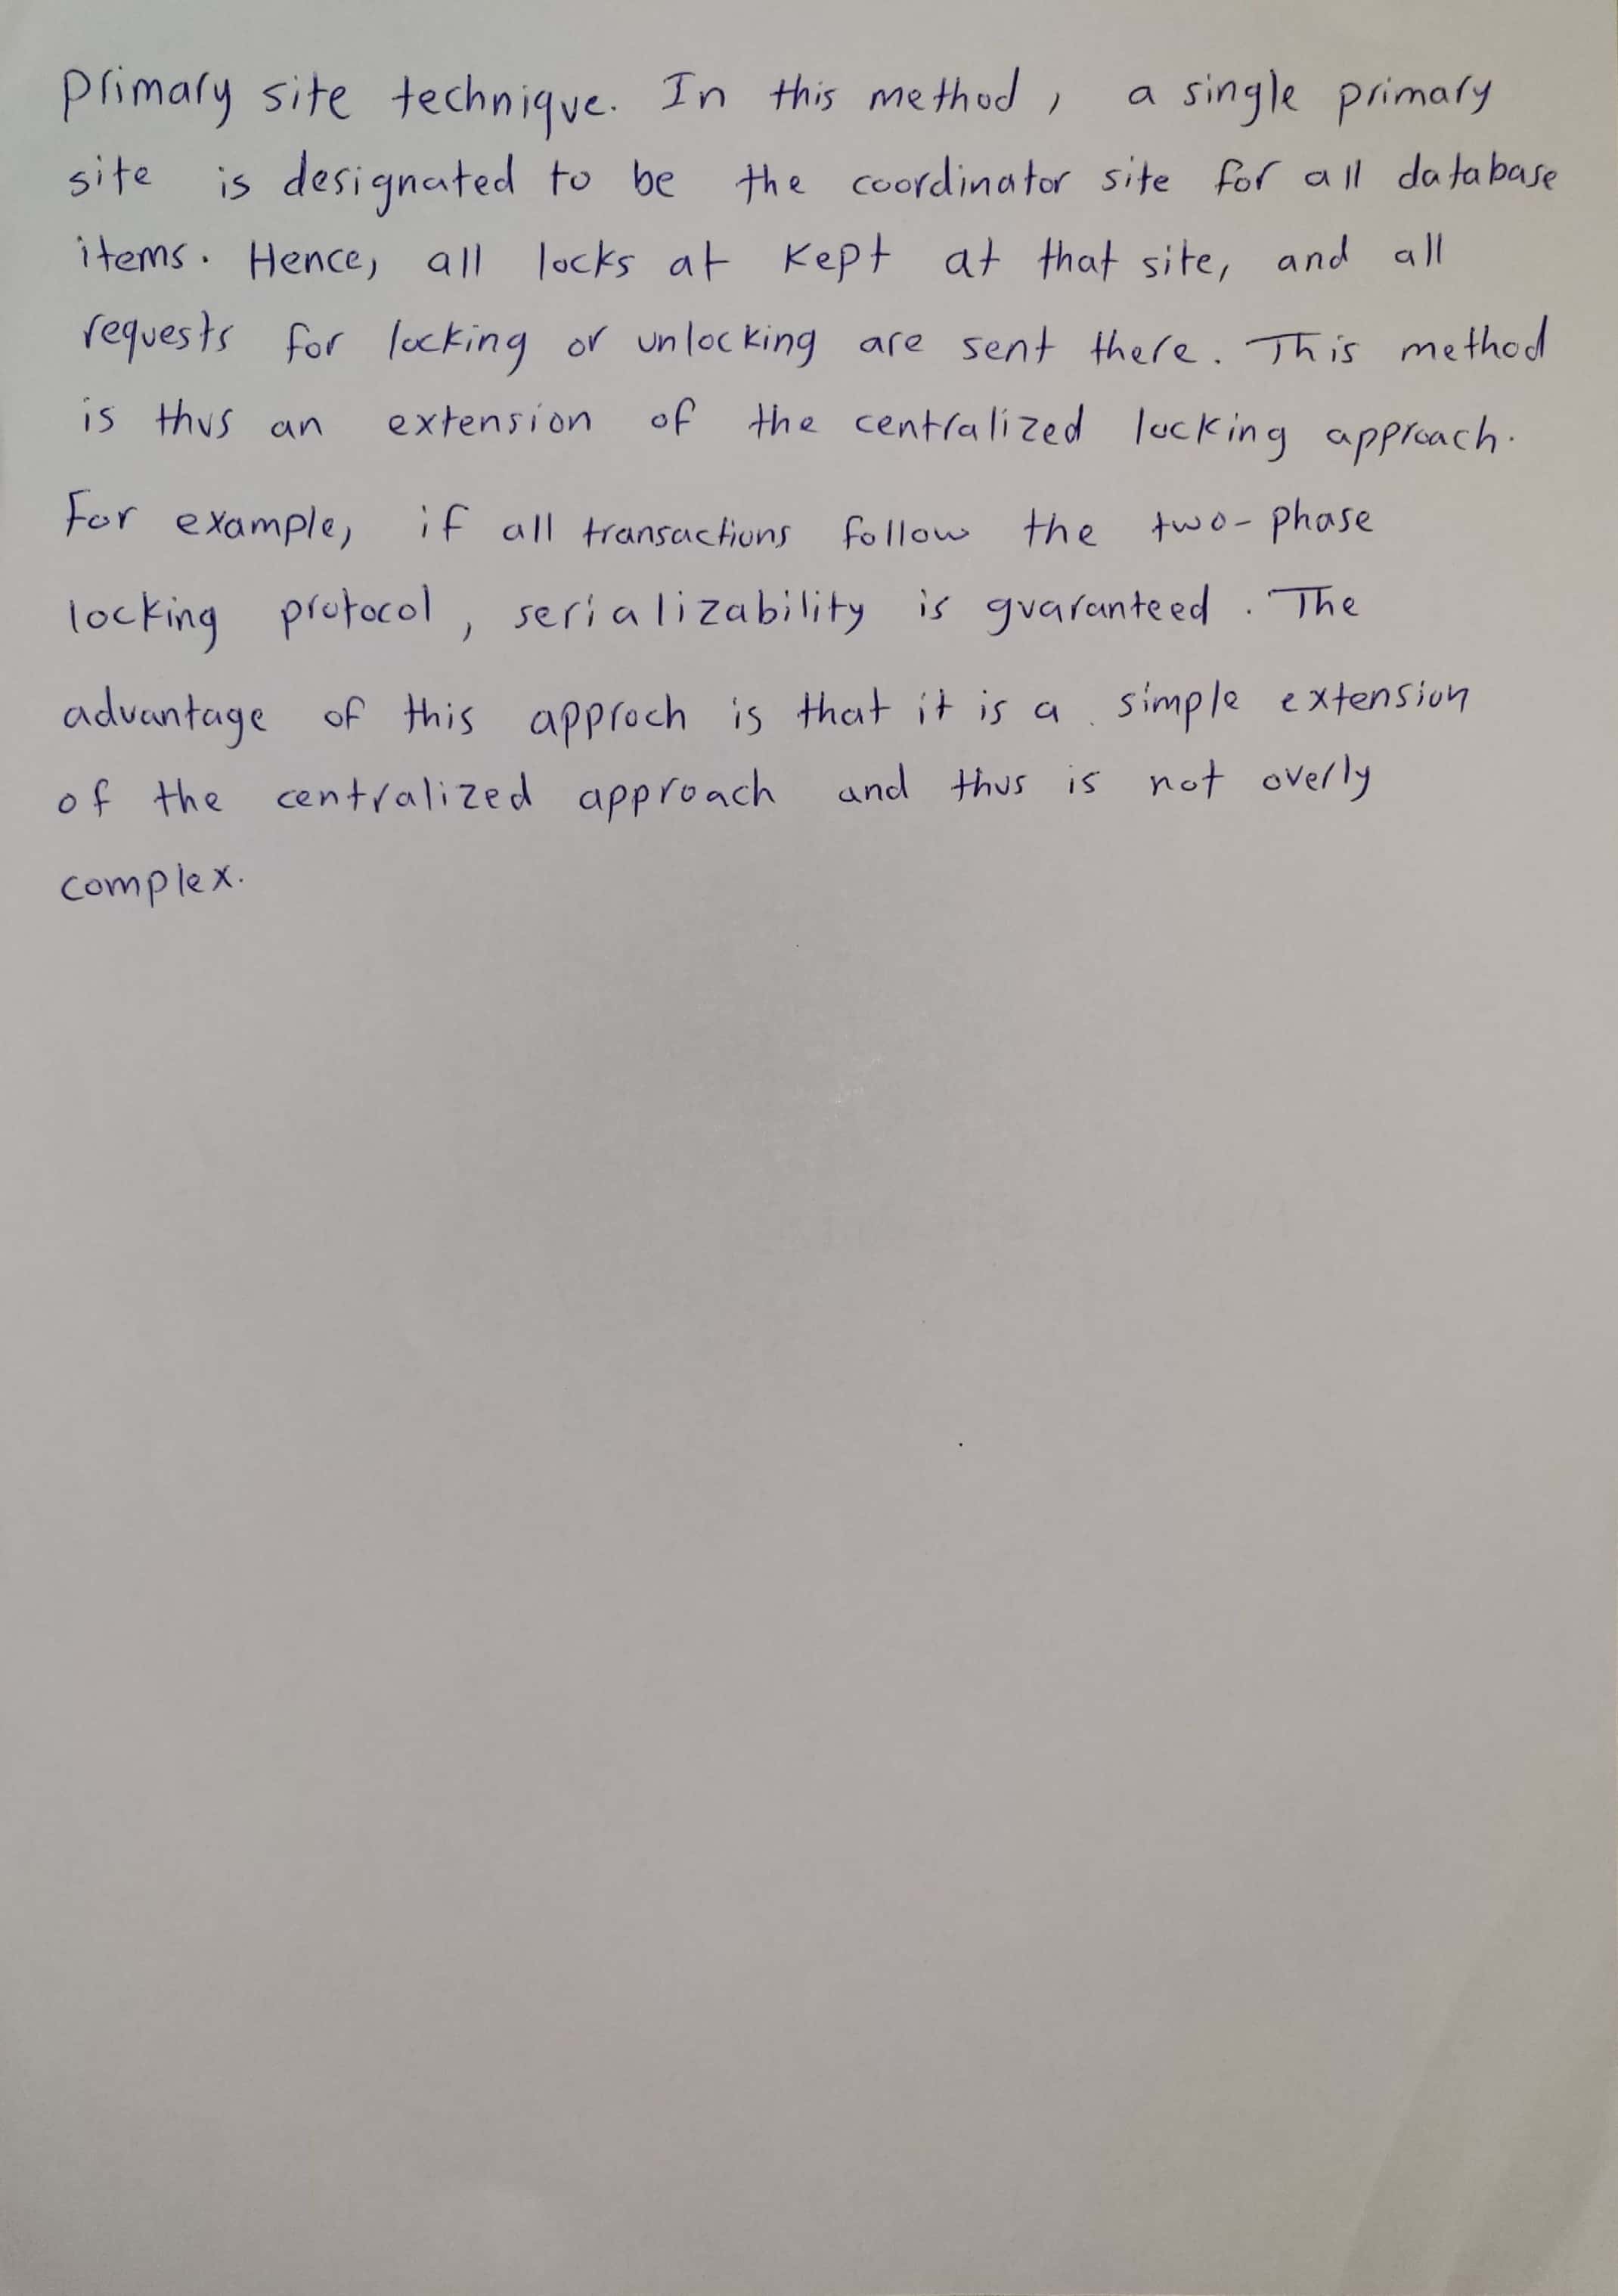 Primary site technique. In this method, a single primary
site is designated to be the coordinator site for all database
items. Hence, all locks at kept at that site, and all
requests for locking or unlocking are sent there. This method
is thus an extension of the centralized locking approach.
For example, if all transactions follow the two-phase
locking protocol, serializability is guaranteed. The
advantage of this approch is that it is a simple extension
of the centralized approach and thus is not overly
complex.